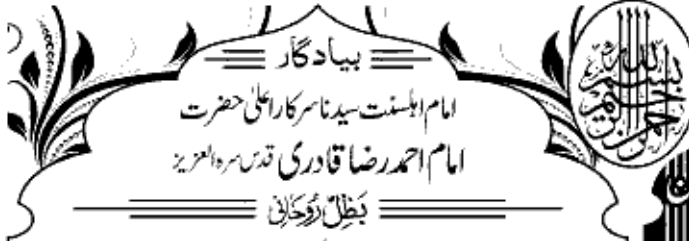 بسم الله الرحمن الرحيم
بیادگار
امام اہلسنت سیدنا سرکار اعلیٰ حضرت
امام احمد رضا قادری قدس سرہ العزیز
بظلِّ رُوحَانی